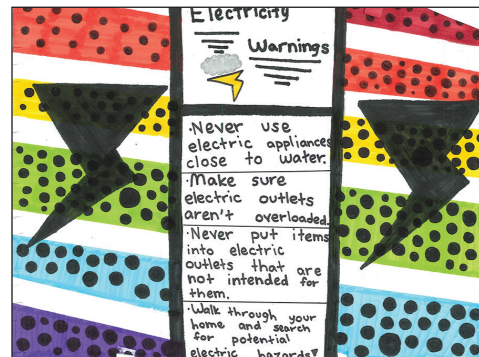 Electricity
Warnings
·Never use
electric appliances
close to water.
·Make sure
electric outlets
aren't overloaded.
·Never put items
into electric
outlets that are
not intended for
them.
·Walk through your
home and search
for potential
electric hazards